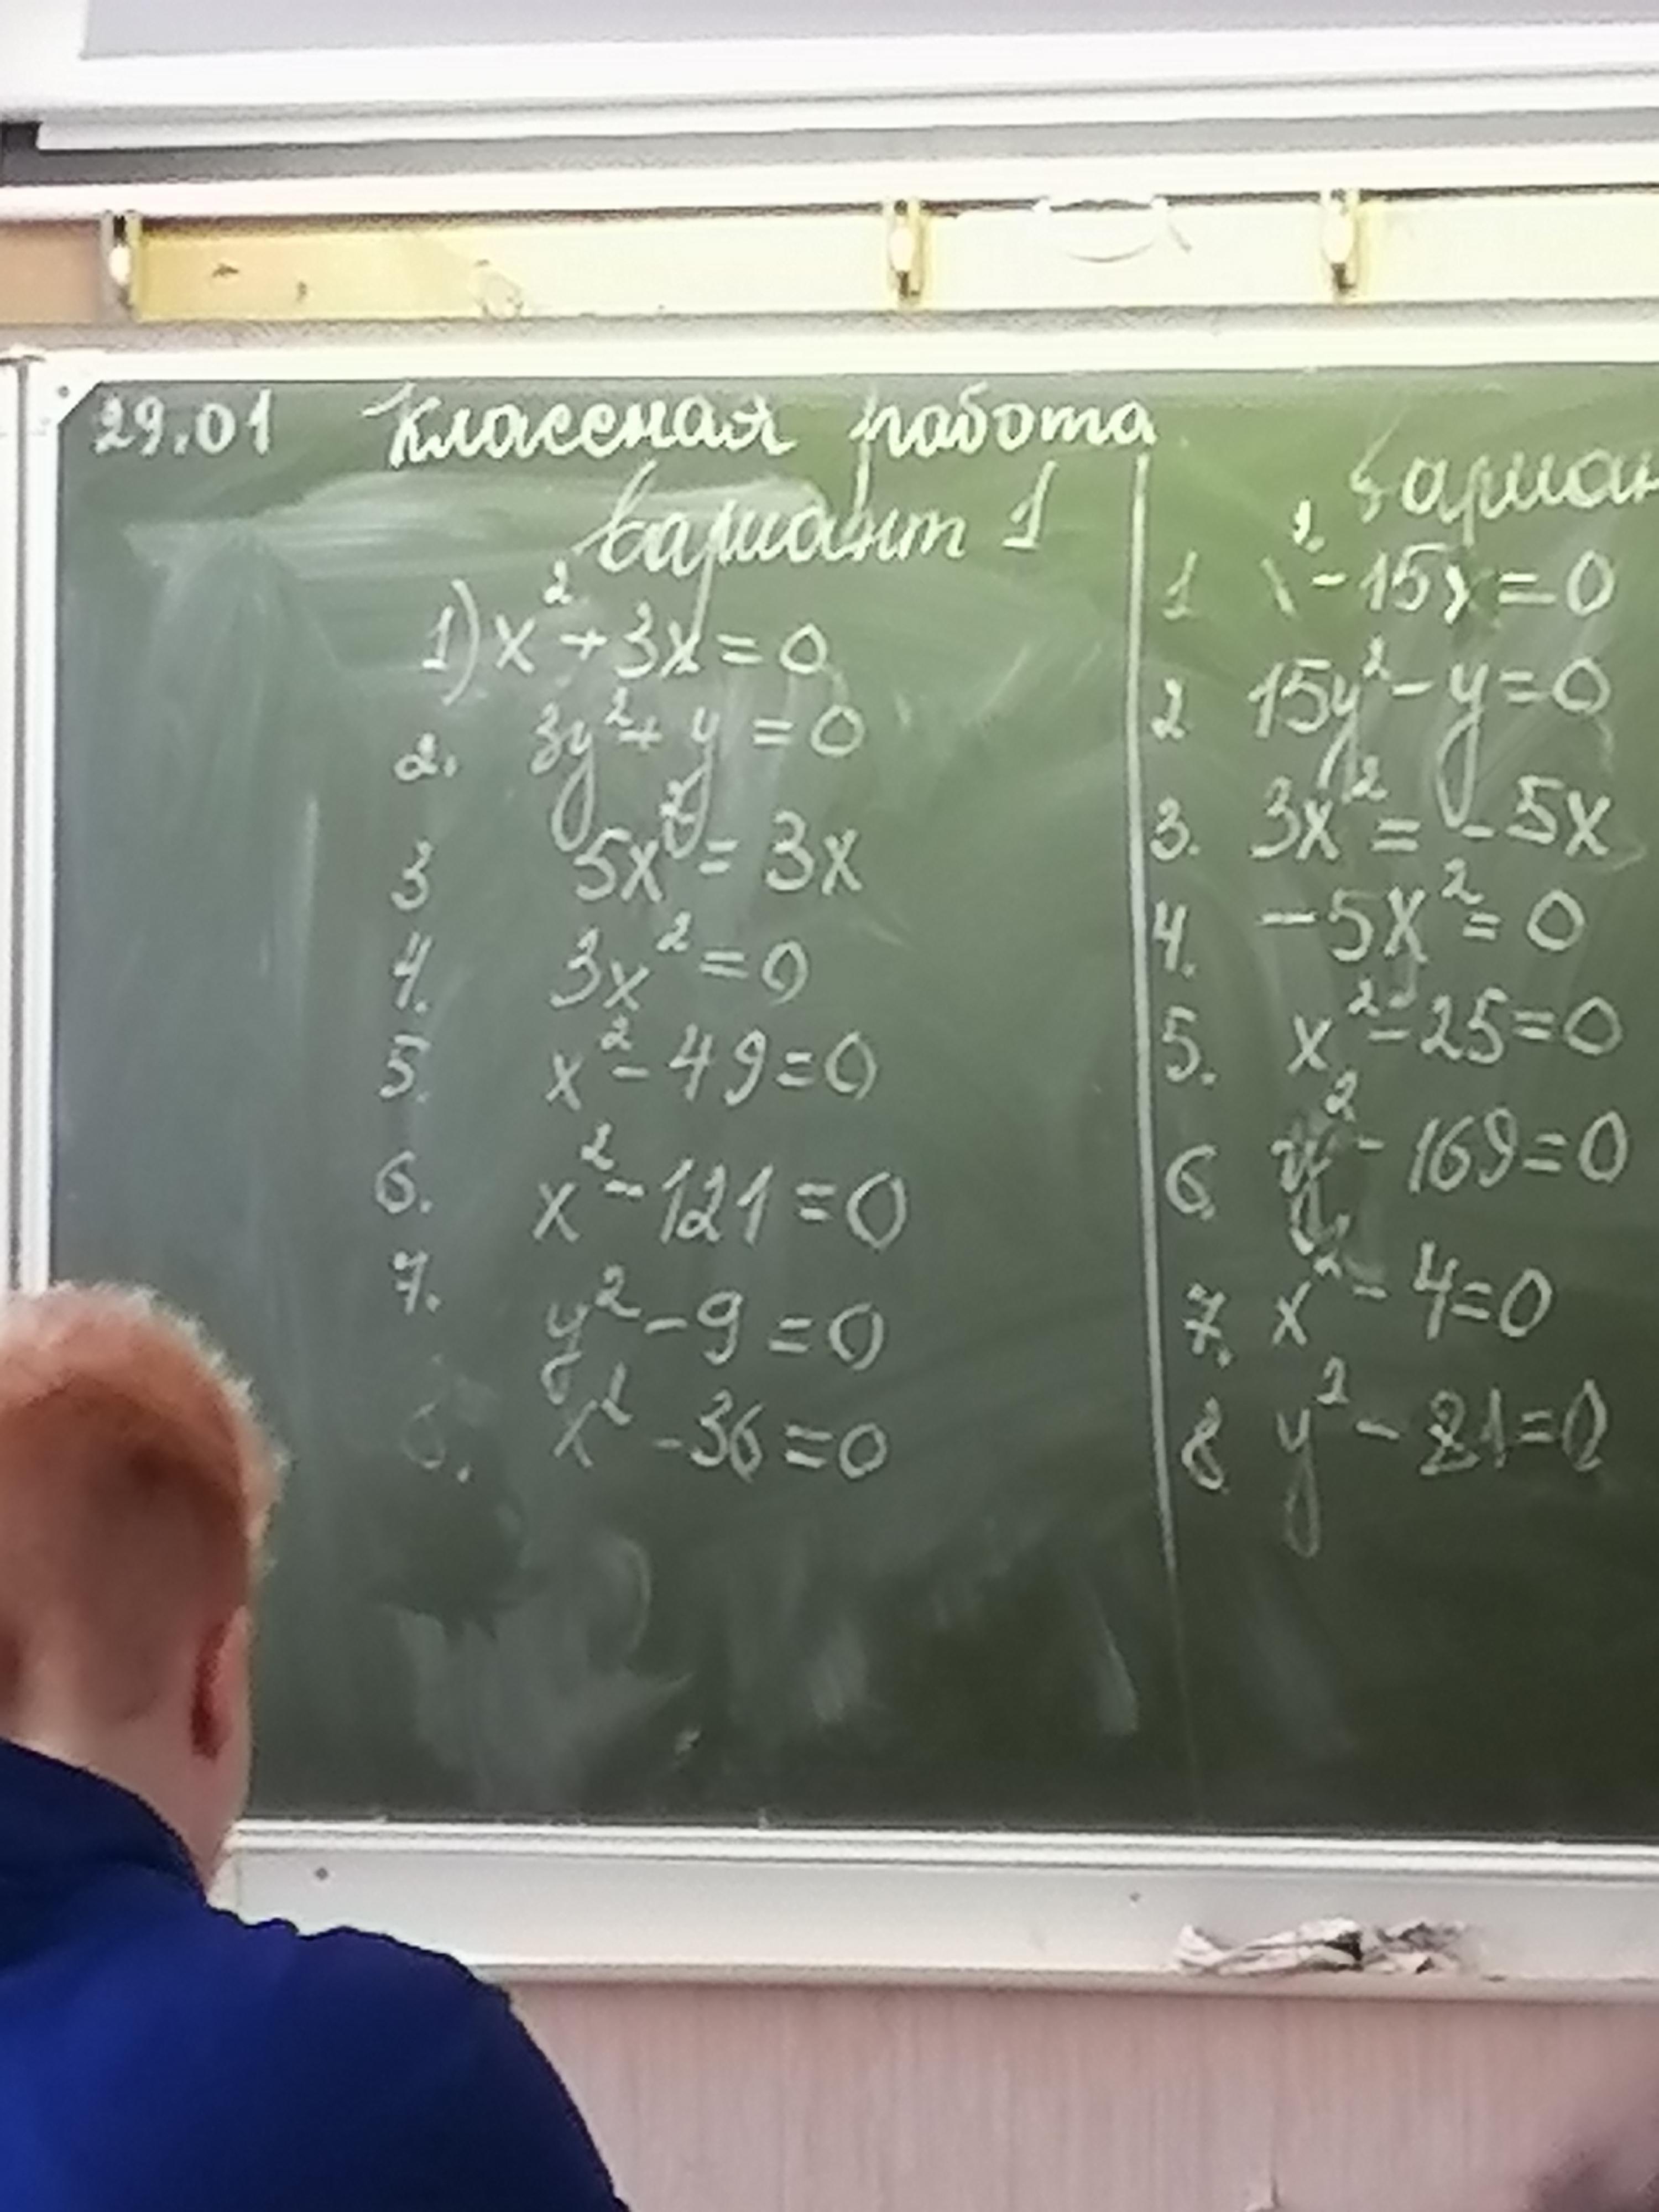 29.01 Классная работа
Вариант 1
1) x² + 3x = 0
2. 3y² + y = 0
3 5x² = 3x
4. 3x² = 0
5. x² - 49 = 0
6. x² - 121 = 0
7. y² - 9 = 0
8. x² - 36 = 0
Вариан
1 x² - 15x = 0
2 15y² - y = 0
3. 3x² = - 5x
4. -5x² = 0
5. x² - 25 = 0
6. y² - 169 = 0
7. x² - 4 = 0
8 y² - 81 = 0